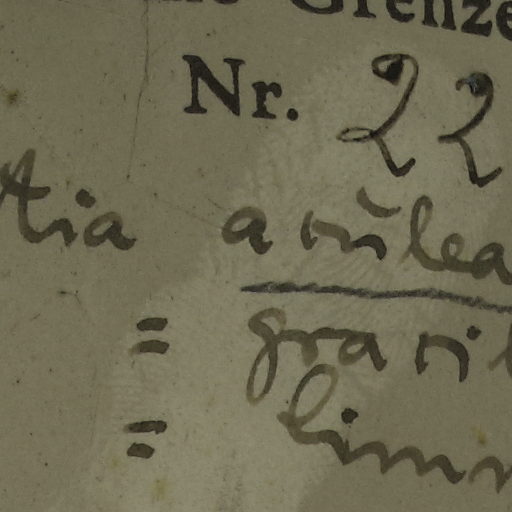 Grenze
Nr. 22
tia aculea
= gracil
= limn